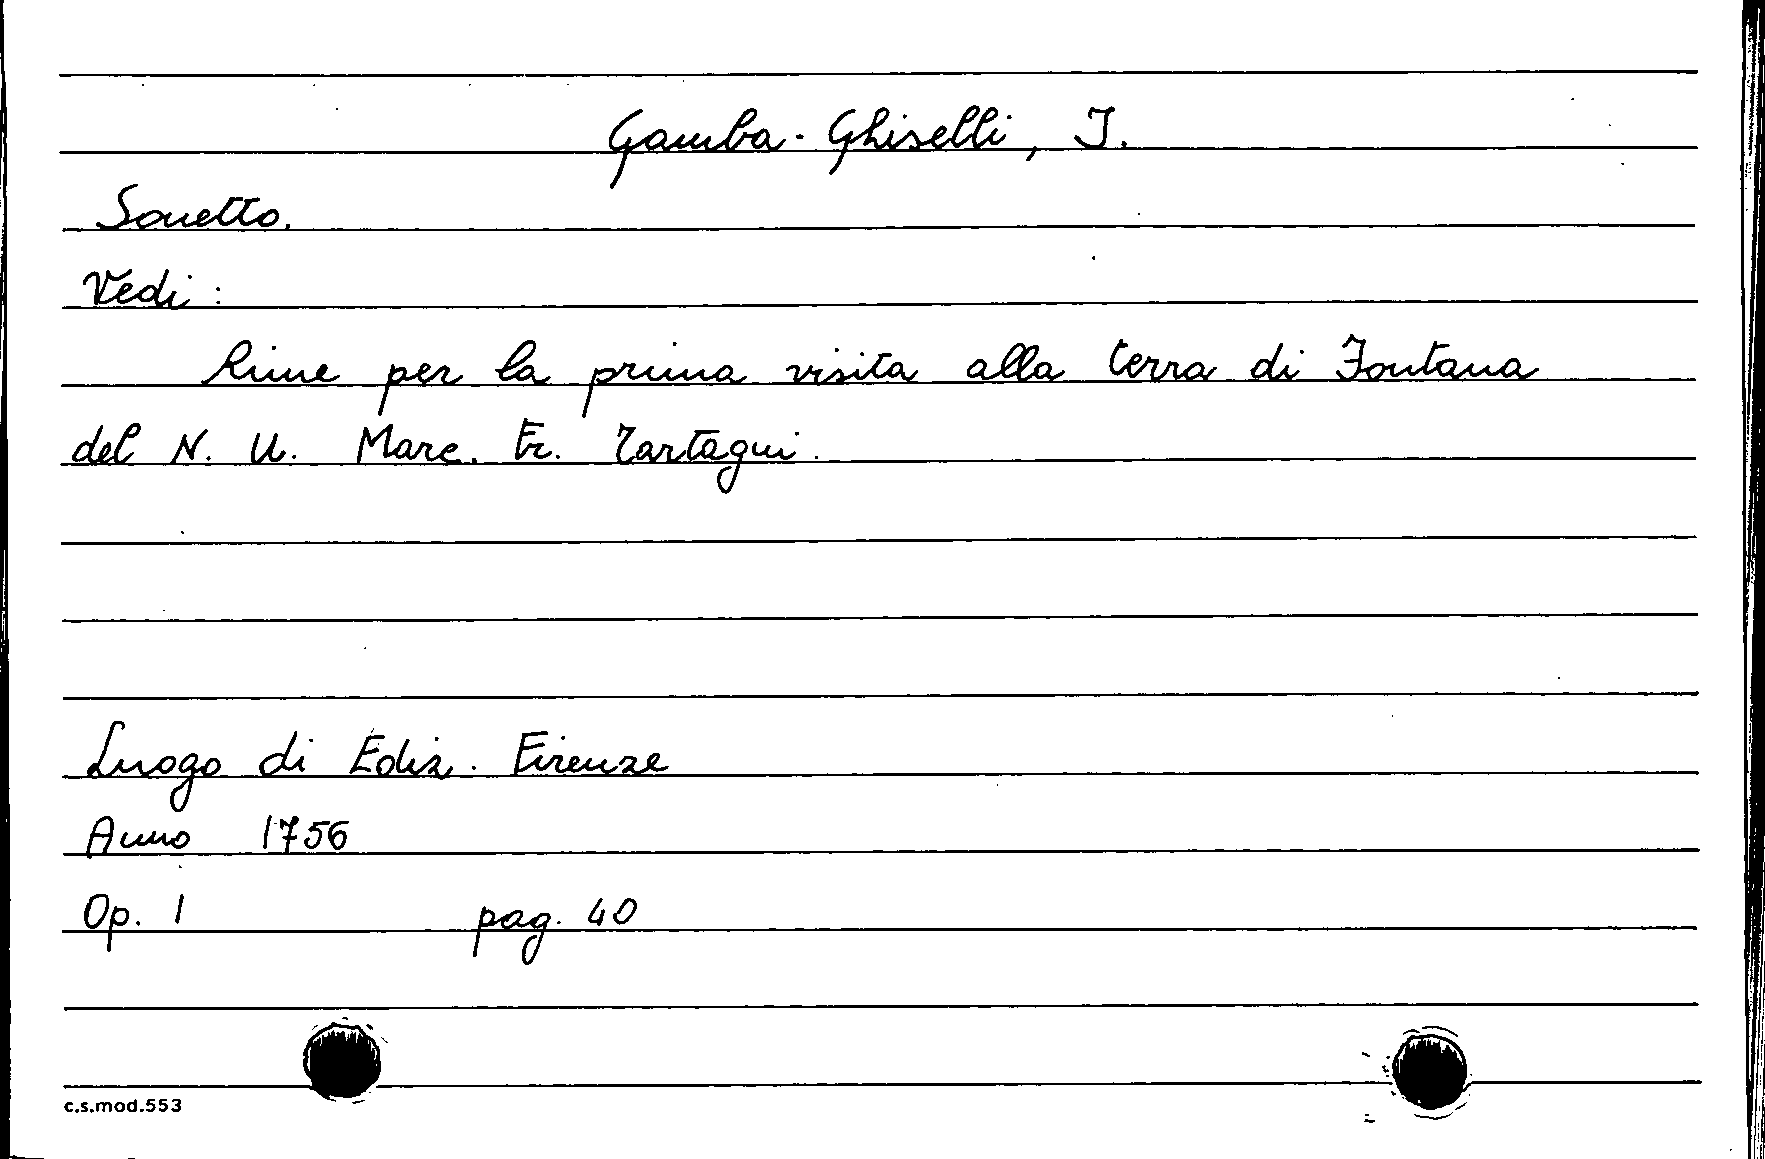 Gamba-Ghiselli, I.
Sonetto.
Vedi:
Rime per la prima visita alla terra di Fontana
del N. U. Marc. Fr. Tartagni.
Luogo di Ediz. Firenze
Anno 1756
Op. 1 pag. 40
c.s.mod.553